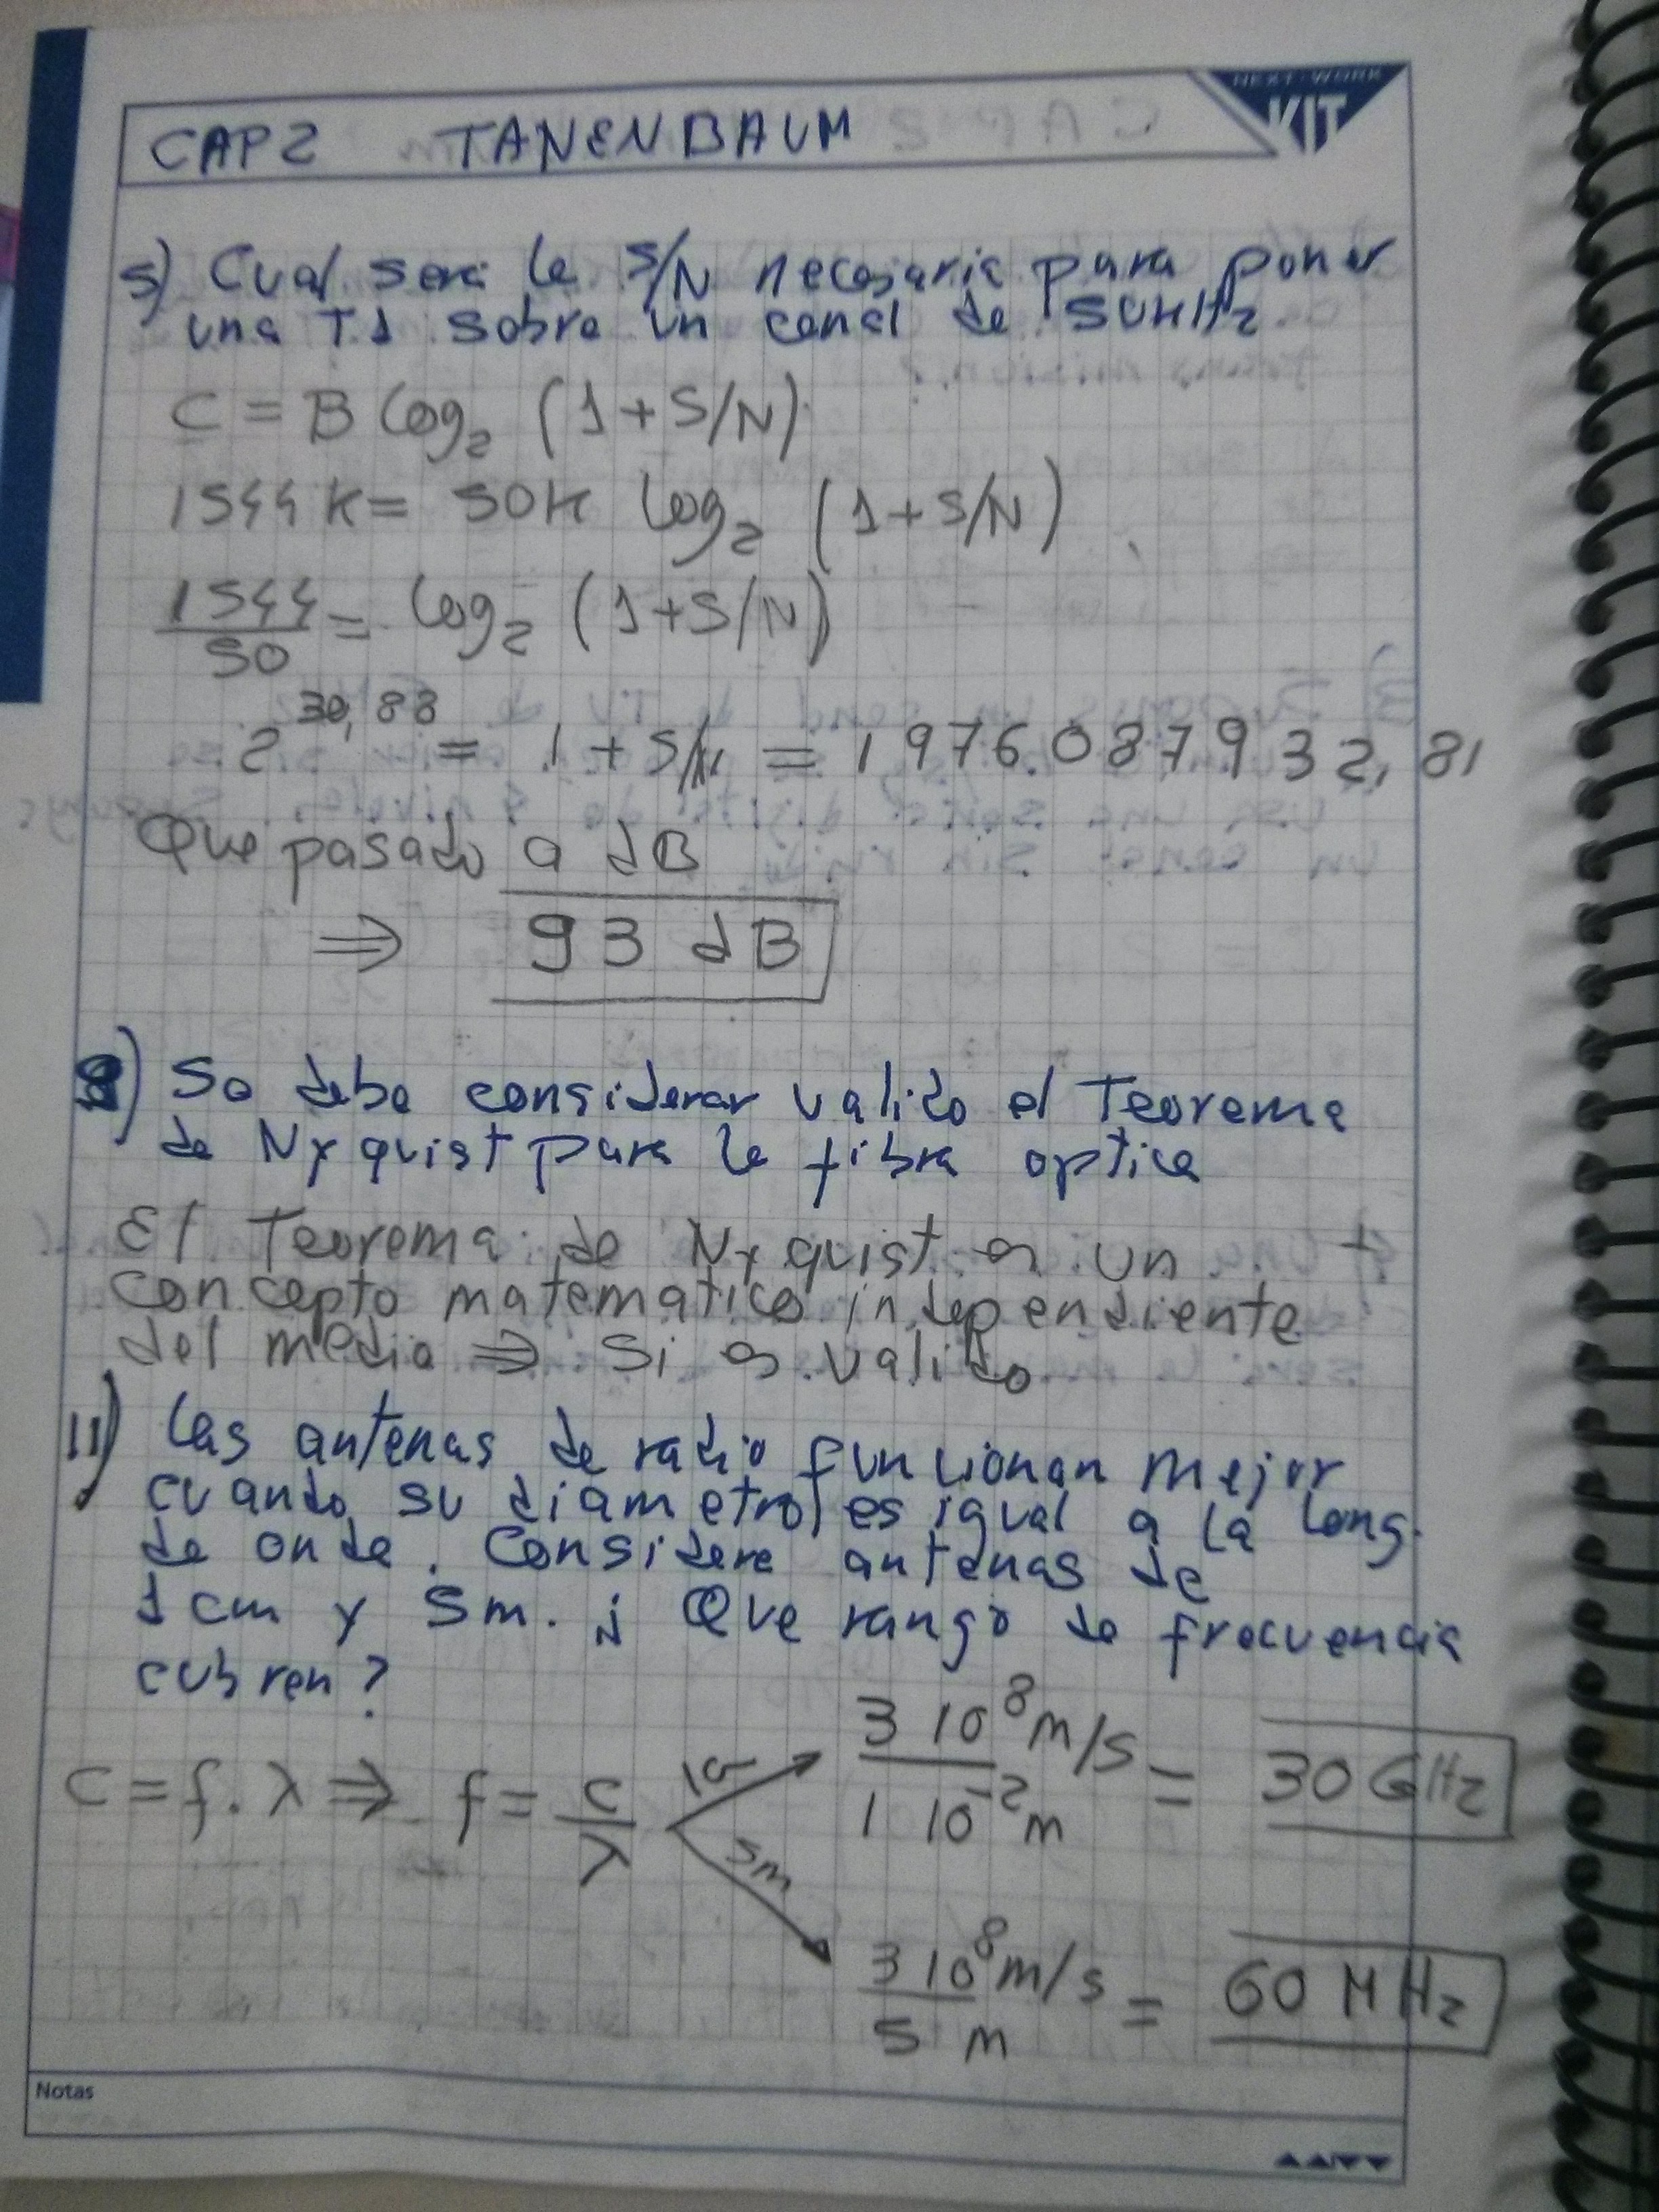 NEXT-WORK
KIT
CAP 2 TANENBAUM
5) Cual sera la S/N necesaria para poner
una T1 sobre un canal de 50KHz
C = B log₂ (1+S/N)
1544 K = 50K log₂ (1+S/N)
1544/50 = log₂ (1+S/N)
2^30,88 = 1 + S/N = 1976087932,81
Que pasado a dB
⇒ 93 dB
) Se debe considerar valido el Teorema
de Nyquist para la fibra optica
El Teorema de Nyquist es un
concepto matematico independiente
del medio ⇒ Si es valido
11) Las antenas de radio funcionan mejor
cuando su diametro es igual a la long.
de onda. Considere antenas de
1 cm y 5m. ¿ Que rango de frecuencia
cubren?
C = f . λ ⇒ f = C/λ
1cm 3 10⁸ m/s / 1 10⁻² m = 30 GHz
5m 3 10⁸ m/s / 5 m = 60 MHz
Notas